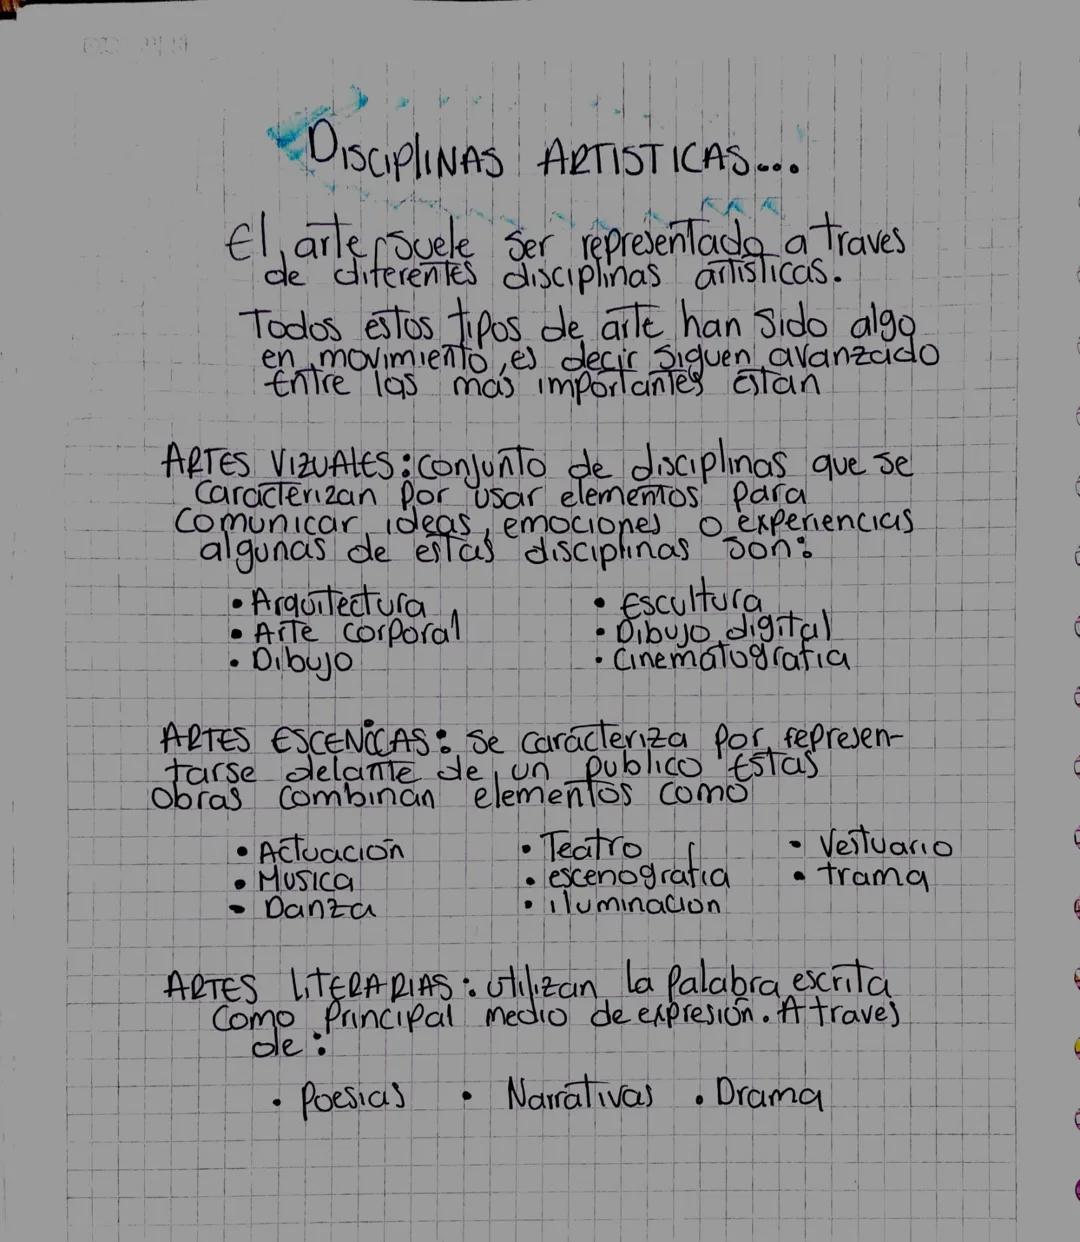 DISCIPLINAS ARTISTICAS...
El arte suele ser representado a traves
de diferentes disciplinas artisticas.
Todos estos tipos de arte han sido algo
en movimiento, es decir siguen avanzado
Entre las mas importantes Estan
ARTES VIZUALES: conjunto de disciplinas que se
caracterizan por usar elementos para
comunicar ideas, emociones o experiencias
algunas de estas disciplinas son:
• Arquitectura • Escultura
• Arte corporal • Dibujo digital
• Dibujo • Cinematografia
ARTES ESCENICAS: se caracteriza por represen-
tarse delante de un publico Estas
obras combinan elementos como
• Actuación • Teatro • Vestuario
• Musica • escenografia • trama
• Danza • iluminación
ARTES LITERARIAS: utilizan la palabra escrita
como principal medio de expresión. A traves
de:
• Poesias • Narrativas • Drama